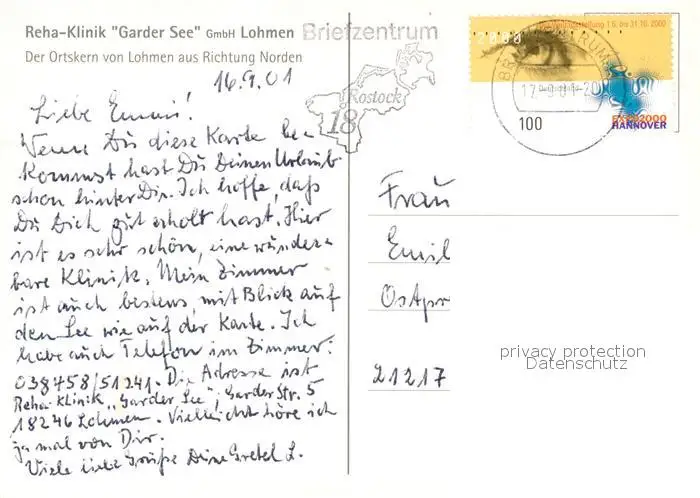 Reha-Klinik "Garder See" GmbH Lohmen
Der Ortskern von Lohmen aus Richtung Norden
16.9.01
Liebe Emmi!
Wenn Du diese Karte be-
kommst hast Du Deinen Urlaub
schon hinter Dir. Ich hoffe, daß
Du Dich gut erholt hast. Hier
ist es sehr schön, eine wunder-
bare Klinik. Mein Zimmer
ist auch bestens, mit Blick auf
den See wie auf der Karte. Ich
habe auch Telefon im Zimmer:
038458/51241. Die Adresse ist
Reha-Klinik "Garder See", Garder Str. 5
18246 Lohmen. Vielleicht höre ich
ja mal von Dir.
Viele liebe Grüße Deine Gretel L.
Briefzentrum
Rostock
18
2000
Weltausstellung 1.6. bis 31.10.2000
Deutschland
100
EXPO2000
HANNOVER
BRIEFZENTRUM
Frau
Emil
Ostpr
21217
privacy protection
Datenschutz